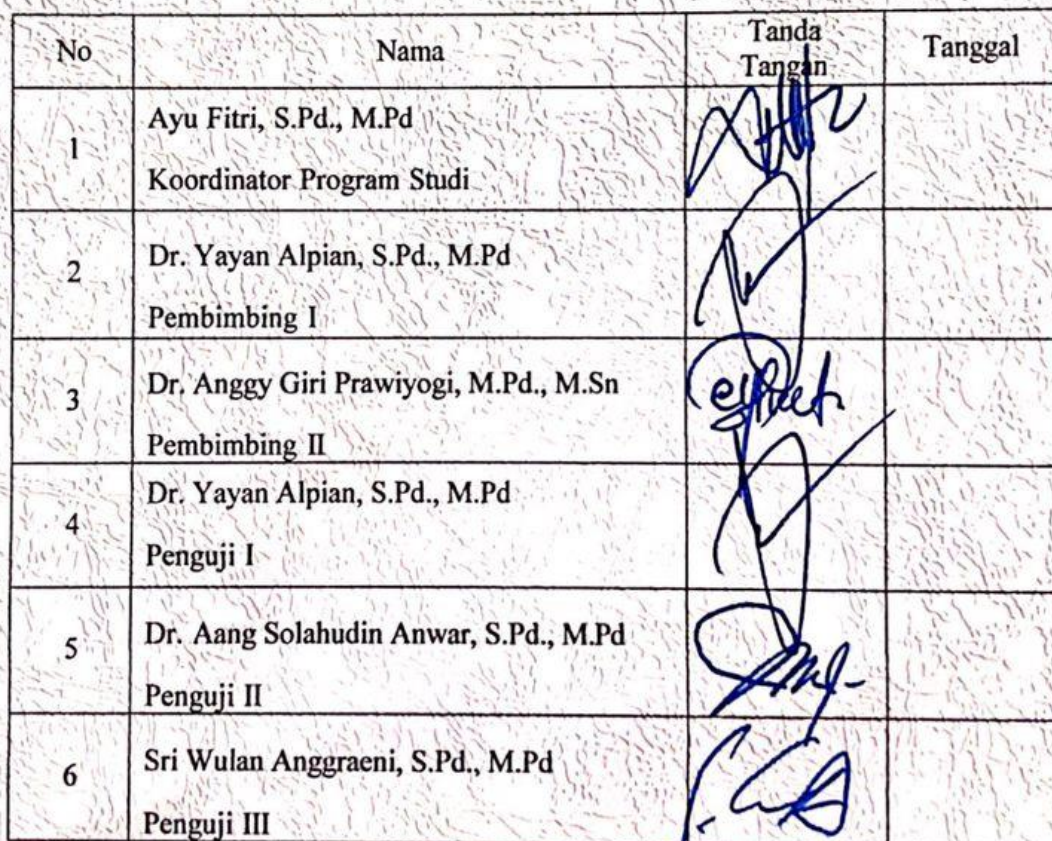 No Nama Tanda Tangan Tanggal
1 Ayu Fitri, S.Pd., M.Pd
Koordinator Program Studi
2 Dr. Yayan Alpian, S.Pd., M.Pd
Pembimbing I
3 Dr. Anggy Giri Prawiyogi, M.Pd., M.Sn
Pembimbing II
4 Dr. Yayan Alpian, S.Pd., M.Pd
Penguji I
5 Dr. Aang Solahudin Anwar, S.Pd., M.Pd
Penguji II
6 Sri Wulan Anggraeni, S.Pd., M.Pd
Penguji III